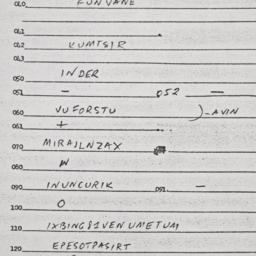 010. FUNVANE
011.
012. KUMTSIR
013.
050 INDER
051 — 052 —
060 VUFORSTU )-AVIN
061. +
070 MIRAJLNZAX
080. N
090 INUNCURIK 091. —
100. O
110 IXBING81VENUMETUM
120 EPESOTPASIRT